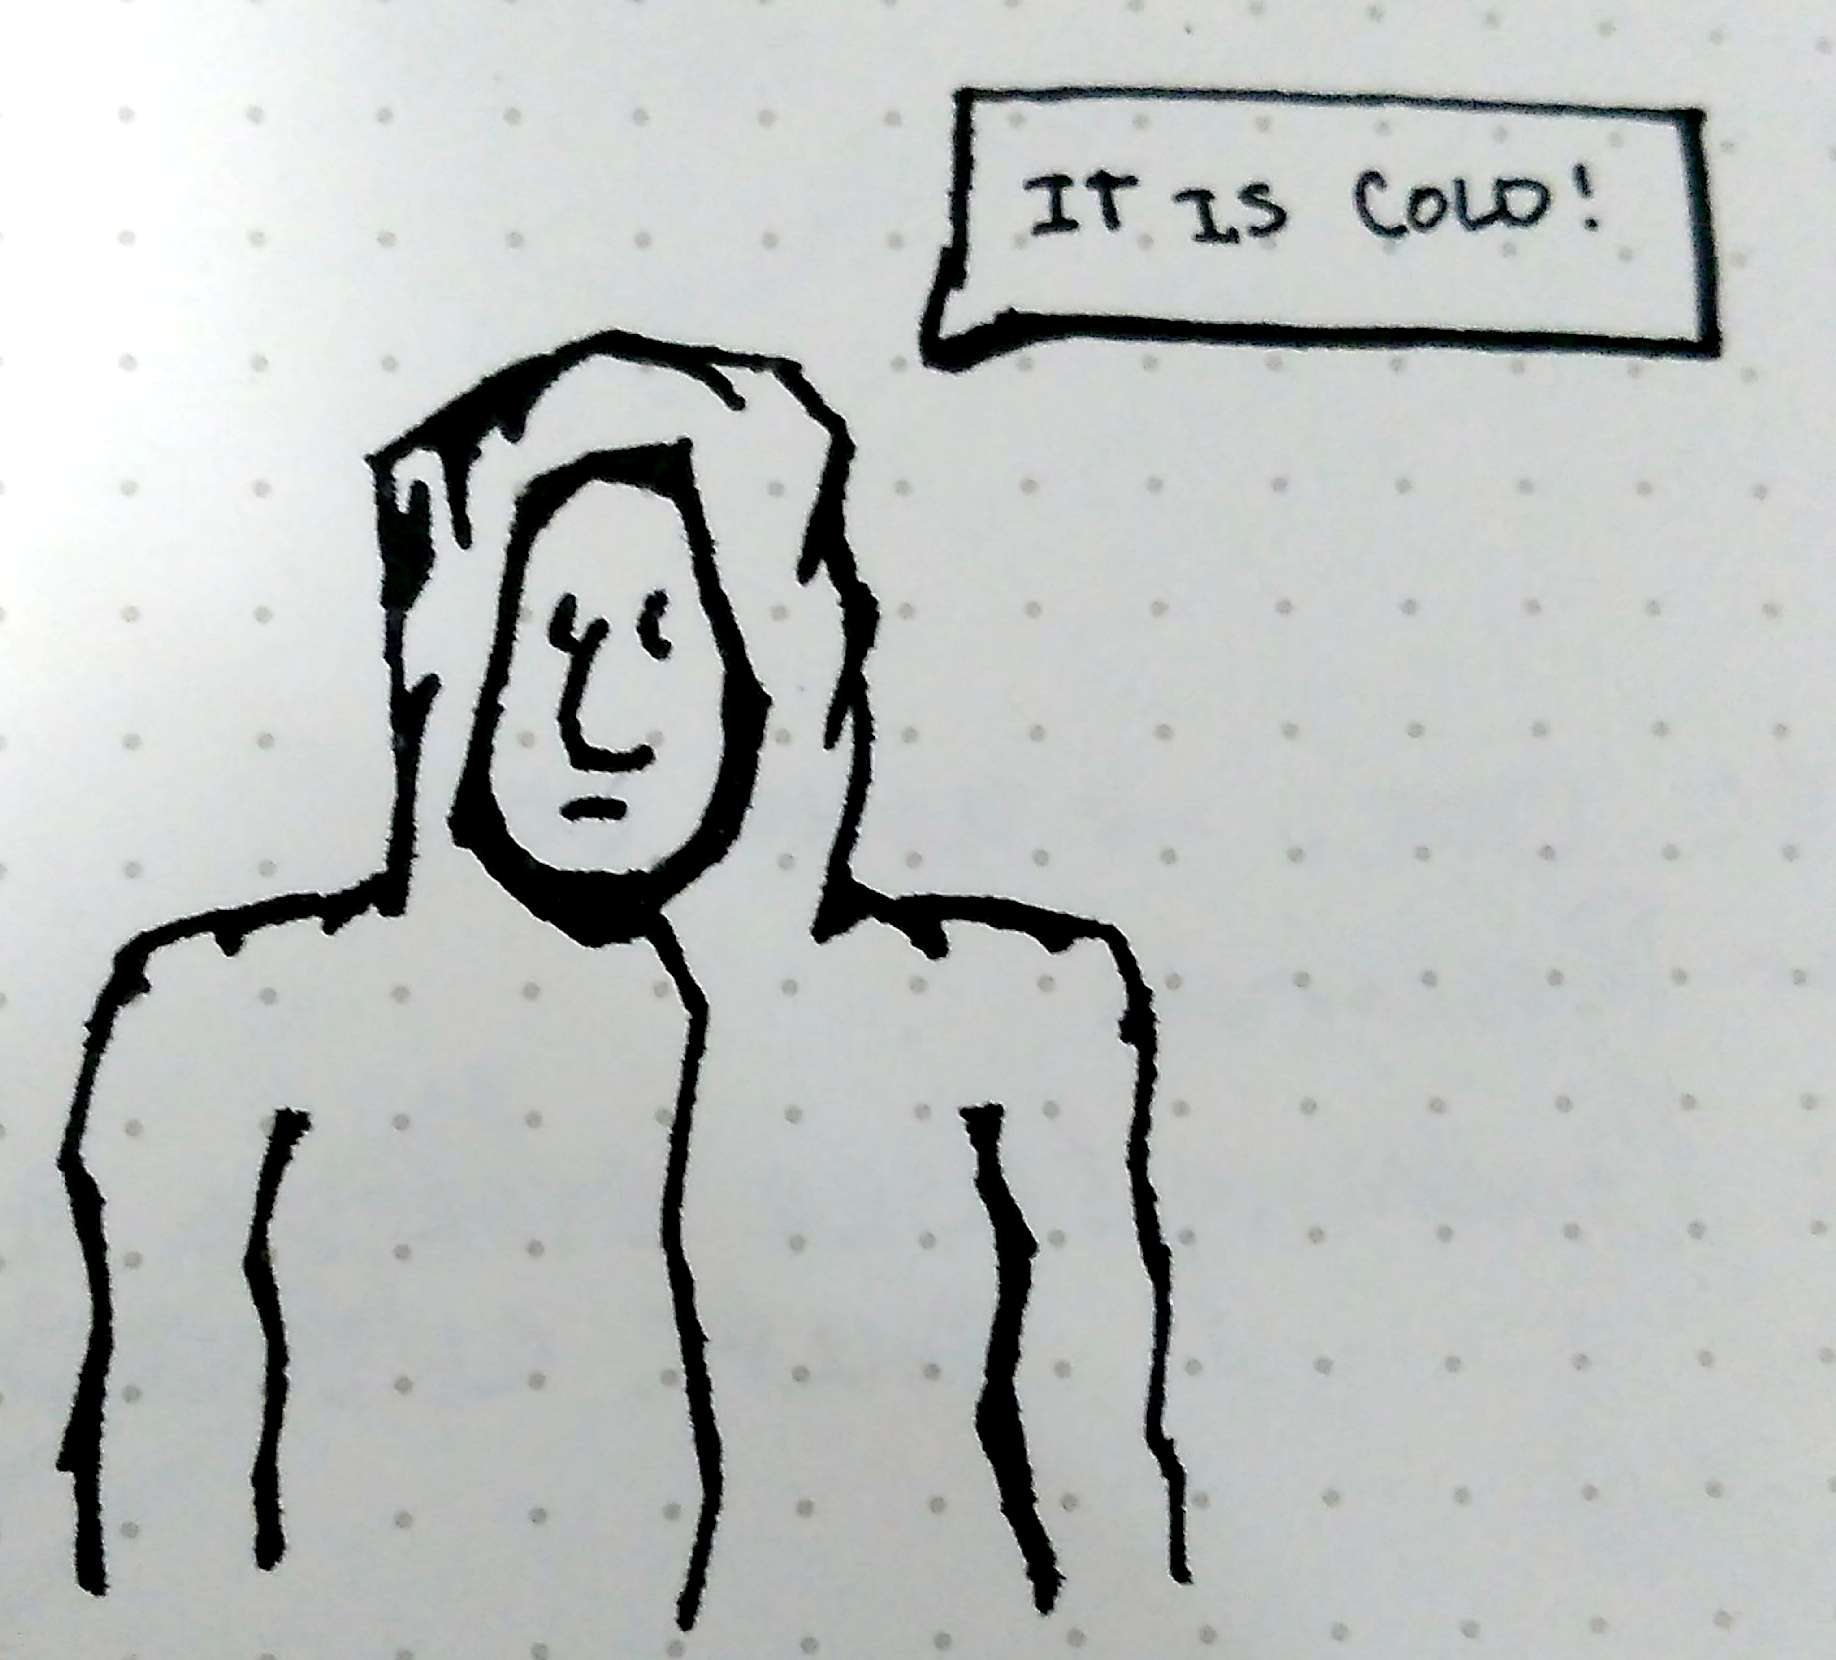 IT IS COLD!